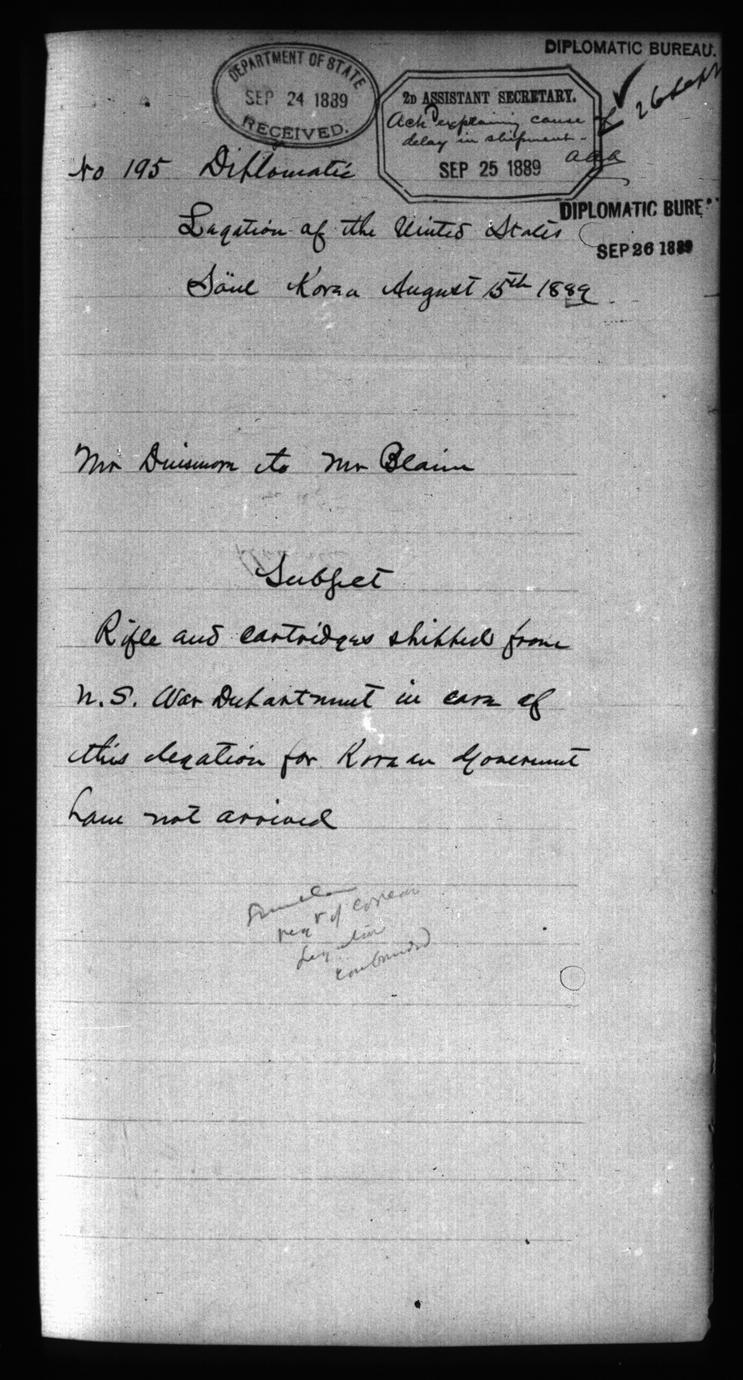 DIPLOMATIC BUREAU.
DEPARTMENT OF STATE
SEP 24 1889
RECEIVED.
2D ASSISTANT SECRETARY.
Ack explaining cause
delay in shipment -
SEP 25 1889
26 Sept
DIPLOMATIC BURE
SEP 26 1889
No 195 Diplomatic
Legation of the United States
Söul Korea August 15th 1889
Mr Dinsmore to Mr Blaine
Subject
Rifle and cartridges shipped from
U.S. War Department in care of
this legation for Korean Government
have not arrived
of Corean
Legation